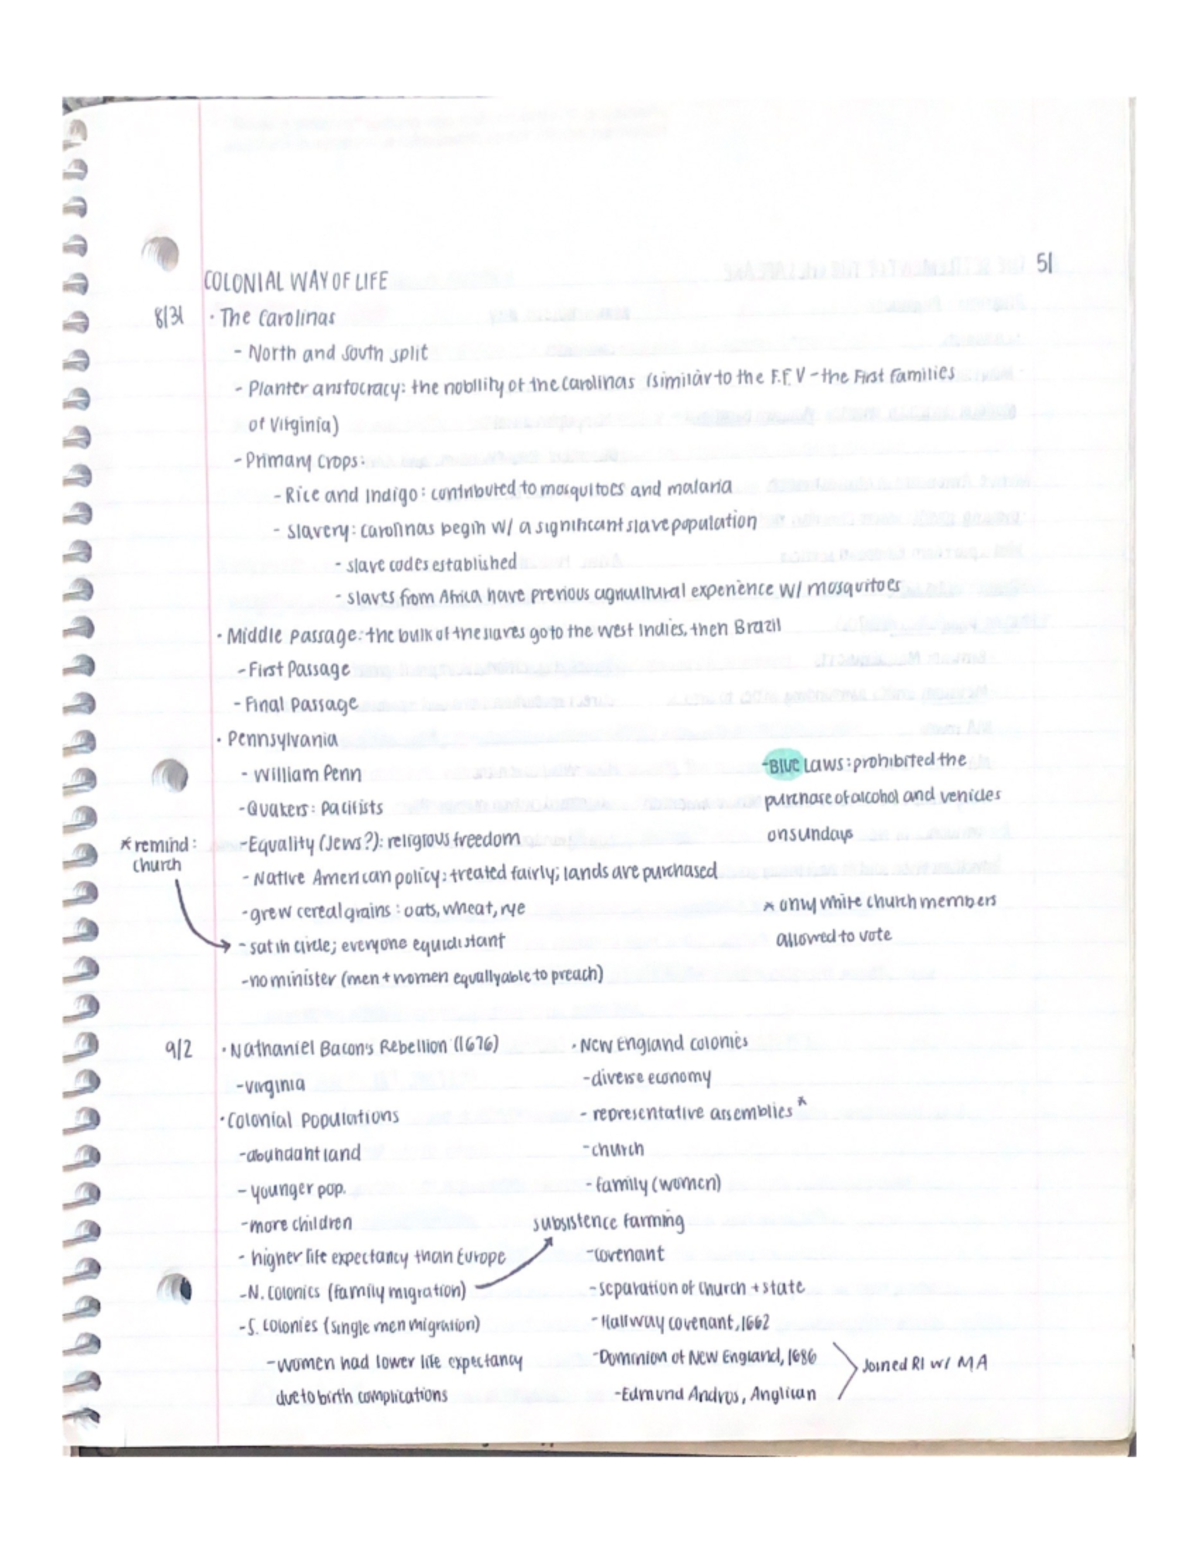 51
COLONIAL WAY OF LIFE
8/31 · The Carolinas
- North and South split
- Planter aristocracy: the nobility of the Carolinas (similar to the F.F.V - the First Families
of Virginia)
- Primary Crops:
- Rice and Indigo: contributed to mosquitoes and malaria
- Slavery: Carolinas begin w/ a significant slave population
- slave codes established
- slaves from Africa have previous agricultural experience w/ mosquitoes
· Middle Passage: the bulk of the slaves go to the West Indies, then Brazil
- First Passage
- Final Passage
· Pennsylvania
- William Penn
- Quakers: Pacifists
- Equality (Jews?): religious freedom
- Native American policy: treated fairly; lands are purchased
- grew cereal grains: oats, wheat, rye
* remind:
church
- sat in circle; everyone equidistant
- no minister (men + women equally able to preach)
- Blue Laws: prohibited the
purchase of alcohol and vehicles
on sundays
* only white church members
allowed to vote
9/2 · Nathaniel Bacon's Rebellion (1676)
- Virginia
· Colonial Populations
- abundant land
- younger pop.
- more children
- higher life expectancy than Europe
- N. colonies (family migration)
- S. colonies (single men migration)
- women had lower life expectancy
due to birth complications
· New England colonies
- diverse economy
- representative assemblies *
- church
- family (women)
subsistence farming
- covenant
- separation of church + state
- Halfway covenant, 1662
- Dominion of New England, 1686
- Edmund Andros, Anglican
Joined RI w/ MA